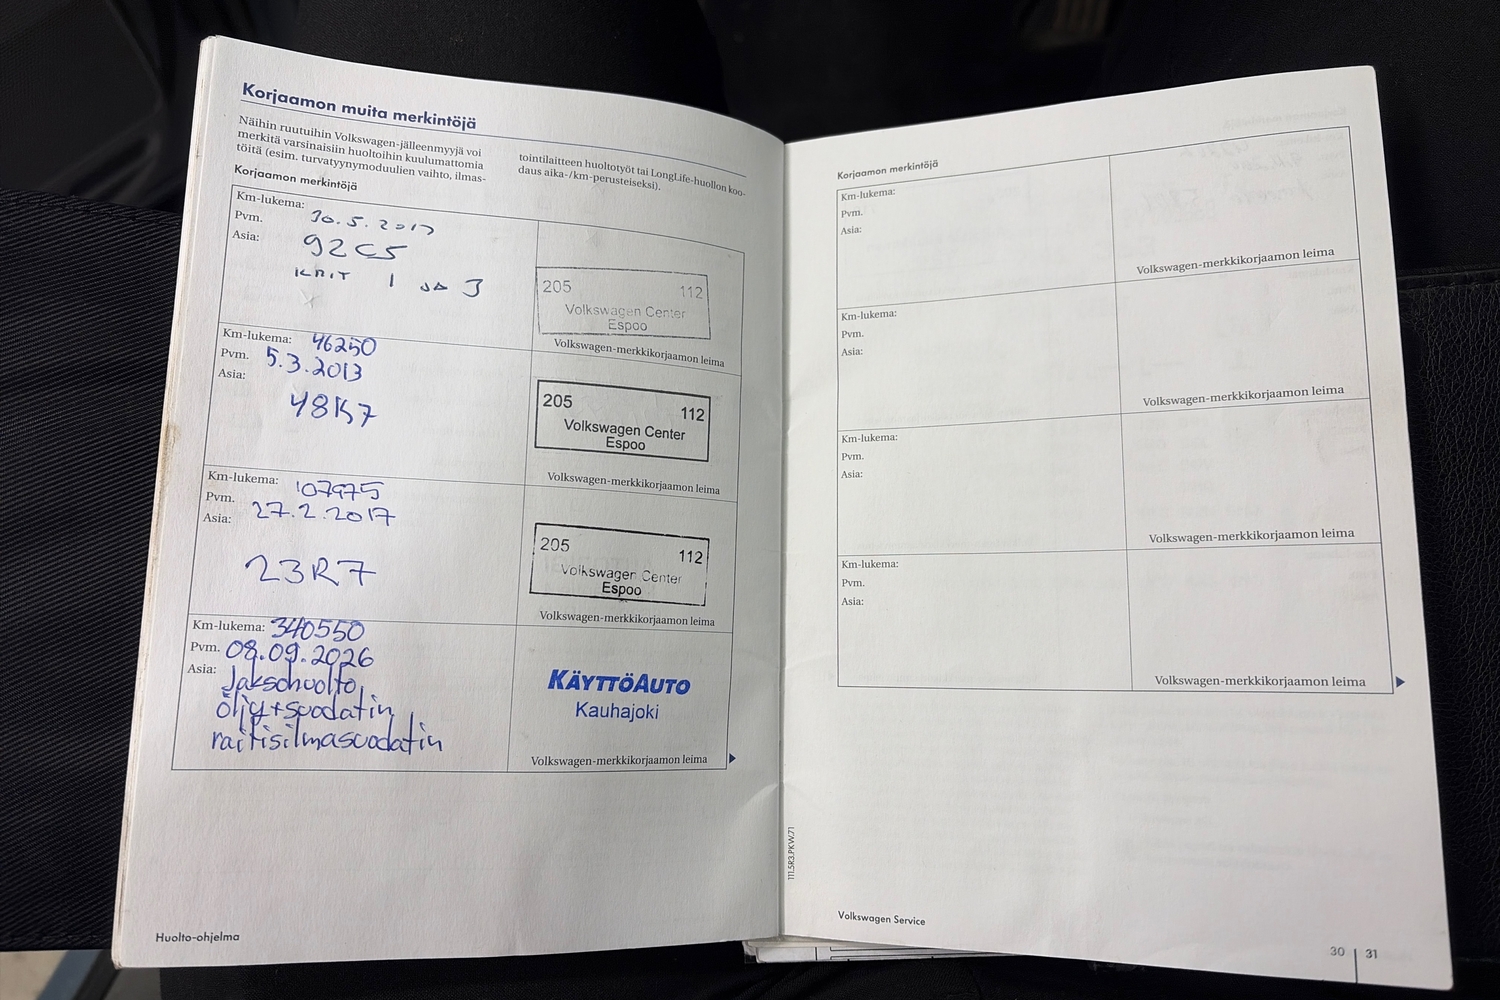 Korjaamon muita merkintöjä
Näihin ruutuihin Volkswagen-jälleenmyyjä voi
merkitä varsinaisiin huoltoihin kuulumattomia
töitä (esim. turvatyynymoduulien vaihto, ilmas-
tointilaitteen huoltotyöt tai LongLife-huollon koo-
daus aika-/km-perusteiseksi).
Korjaamon merkintöjä
Km-lukema:
Pvm.
Asia: 92C5
1 ja 3
205 112
Volkswagen Center
Espoo
Volkswagen-merkkikorjaamon leima
Km-lukema: 46250
Pvm. 5.3.2013
Asia:
48K7
205 112
Volkswagen Center
Espoo
Volkswagen-merkkikorjaamon leima
Km-lukema: 107975
Pvm. 27.2.2017
Asia:
23R7
205 112
Volkswagen Center
Espoo
Volkswagen-merkkikorjaamon leima
Km-lukema: 340550
Pvm. 08.09.2026
Asia: Jakschuolto,
öljy+suodatin,
raitisilmasuodatin
KÄYTTÖAUTO
Kauhajoki
Volkswagen-merkkikorjaamon leima
Huolto-ohjelma
111.5R3.PKW.71
Korjaamon merkintöjä
Km-lukema:
Pvm.
Asia:
Volkswagen-merkkikorjaamon leima
Km-lukema:
Pvm.
Asia:
Volkswagen-merkkikorjaamon leima
Km-lukema:
Pvm.
Asia:
Volkswagen-merkkikorjaamon leima
Km-lukema:
Pvm.
Asia:
Volkswagen-merkkikorjaamon leima
Volkswagen Service
30 31